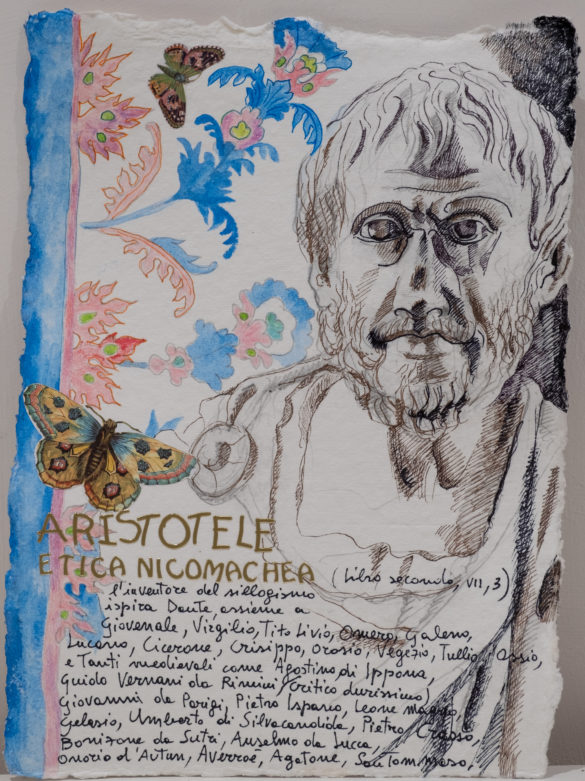 ARISTOTELE
ETICA NICOMACHEA (Libro secondo, VII, 3)
l'inventore del sillogismo
ispira Dante, assieme a
Giovenale, Virgilio, Tito Livio, Omero, Galeno,
Lucano, Cicerone, Crisippo, Orosio, Vegezio, Tullio,
e Tanti medievali come Agostino di Ippona,
Guido Vernani da Rimini (critico durissimo)
Giovanni da Parigi, Pietro Ispano, Leone magno,
Gelasio, Umberto di Silvacandida, Pietro Crasso,
Bonizone da Sutri, Anselmo da Lucca,
Onorio d'Autun, Averroe, Agatone, San Tommaso,